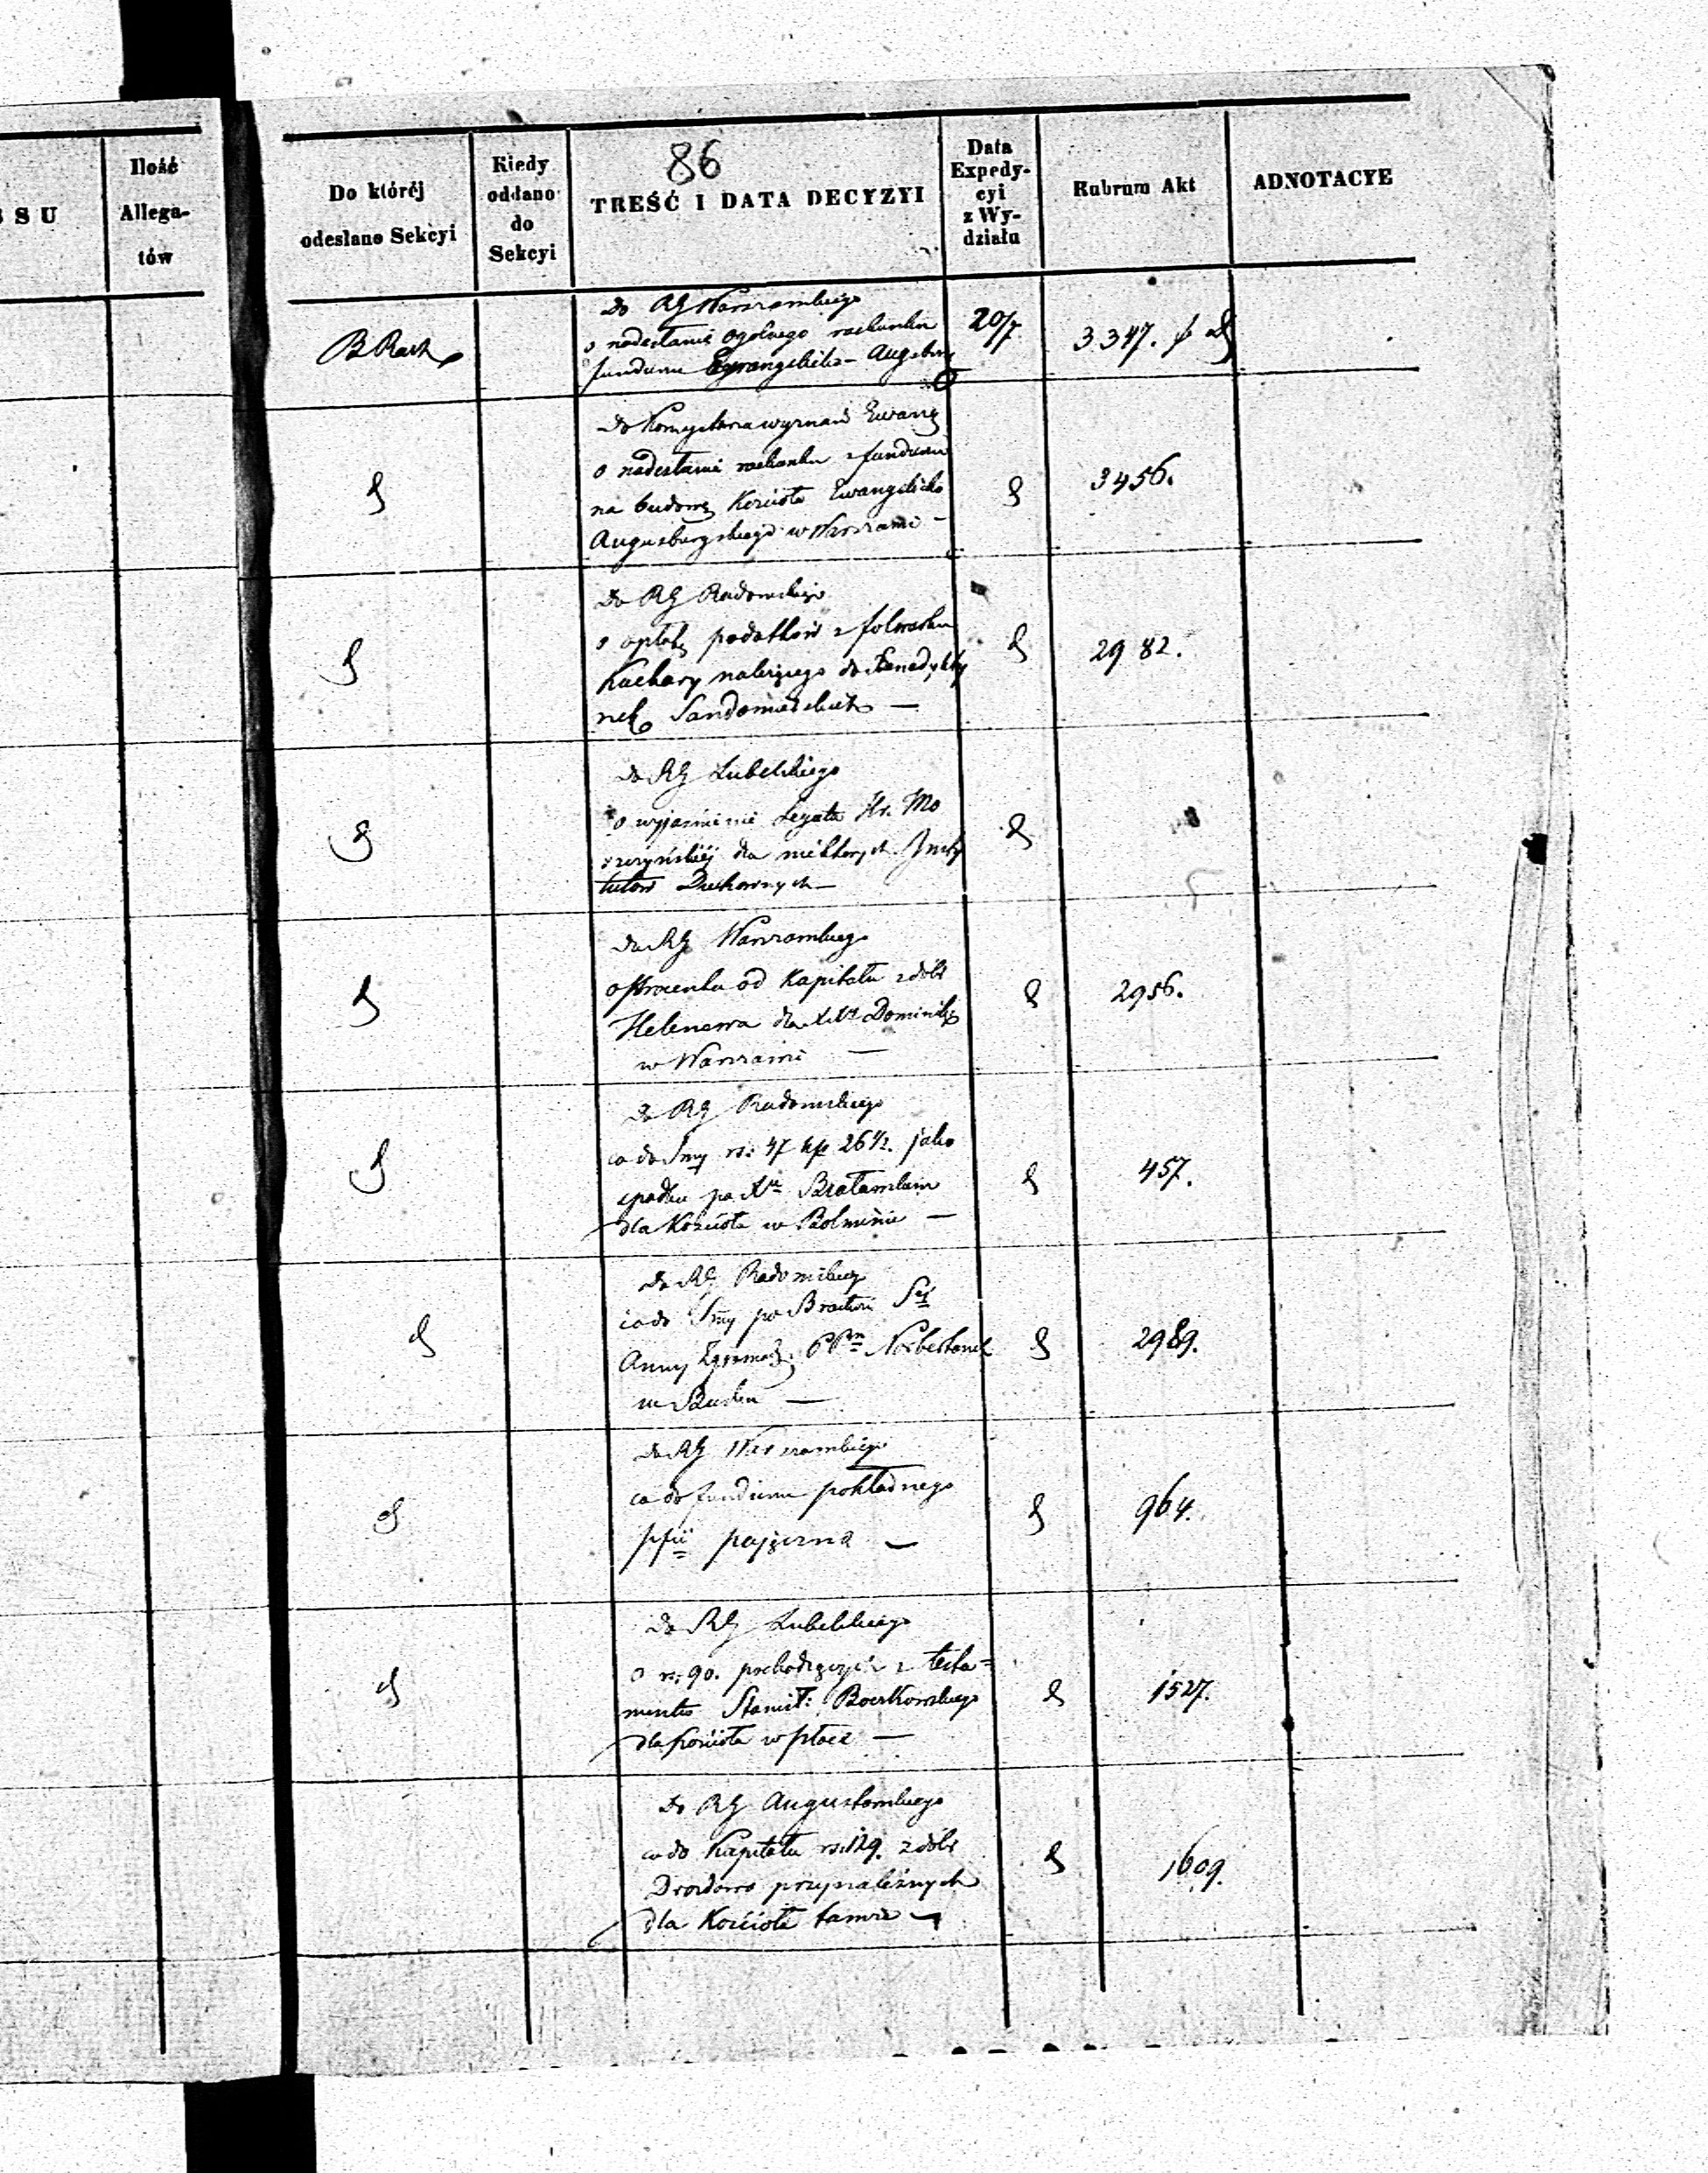 S S U
Ilość
Allega-
tów
86
Do któréj
odesłano Sekcyi
Kiedy
oddano
do
Sekcyi
TREŚĆ I DATA DECYZYI
Data
Expedy-
cyi
z Wy-
działu
Rubrum Akt
ADNOTACYE
B Rach
do RG Warszawskiego
o nadesłanie ogolnego rachunku
funduszu Ewangelicko - Augsburg
20/7
3347.
do Konsystorza wyznań Ewang
o nadesłanie rachunku z funduszu
na budowę Kościoła Ewangelicko
Augsburgskiego w Warszawie -
3456.
Do RG Radomskiego
o opłatę podatków z folwarku
Kuchary należącego do Benedykty
nek Sandomierskich —
2982.
do RG Lubelskiego
o wyjaśnienie Legatu Hr. Mo
szczyńskiéj dla niektórych Insty
tutów Duchownych —
do RG Warszawskiego
o procenta od Kapitału z dóbr
Helenowa dla XXy Dominik
w Warszawie —
2956.
do RG Radomskiego
co do Smy rs: 47 kp 26 1/2. jako
spadku po Xu Bratawskim
dla Kościoła w Bolminie —
457.
do RG Radomskieg
co do Smy po Bractwie Sej
Anny PPn Norbertanek
w Busku —
2989.
do RG Warszawskiego
co do funduszu pokładnego
pfii pajęczna —
964.
do RG Lubelskiego
o rs: 90. pochodzących z testa=
mentu Stanisł: Boczkowskiego
dla Kościoła w
1527.
do RG Augustowskiego
co do Kapitału rs: 129. z dóbr
Drozdowo przynależnych
dla Kościoła tamże —
1609.